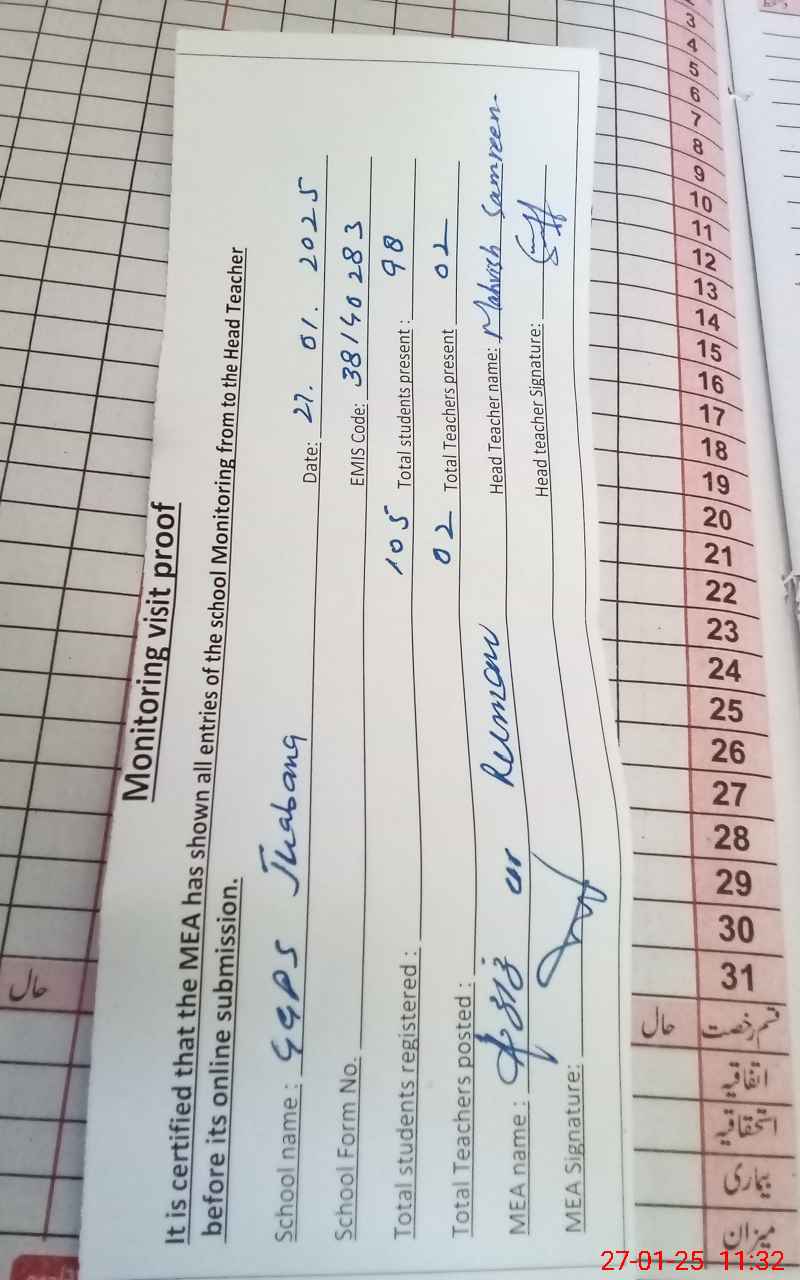 Monitoring visit proof
It is certified that the MEA has shown all entries of the school Monitoring from to the Head Teacher
before its online submission.
School name : GGPS Jhabana Date: 27. 01. 2025
School Form No. EMIS Code: 38140283
Total students registered : 105 Total students present : 98
Total Teachers posted : 02 Total Teachers present 02
MEA name : ur Rehman Head Teacher name: Mahvish Samreen
MEA Signature: Head teacher Signature:
حال
3
4
5
6
7
8
9
10
11
12
13
14
15
16
17
18
19
20
21
22
23
24
25
26
27
28
29
30
31
حال
قسم رخصت
اتفاقیہ
استحقاقیہ
بیماری
میزان
27-01-25 11:32